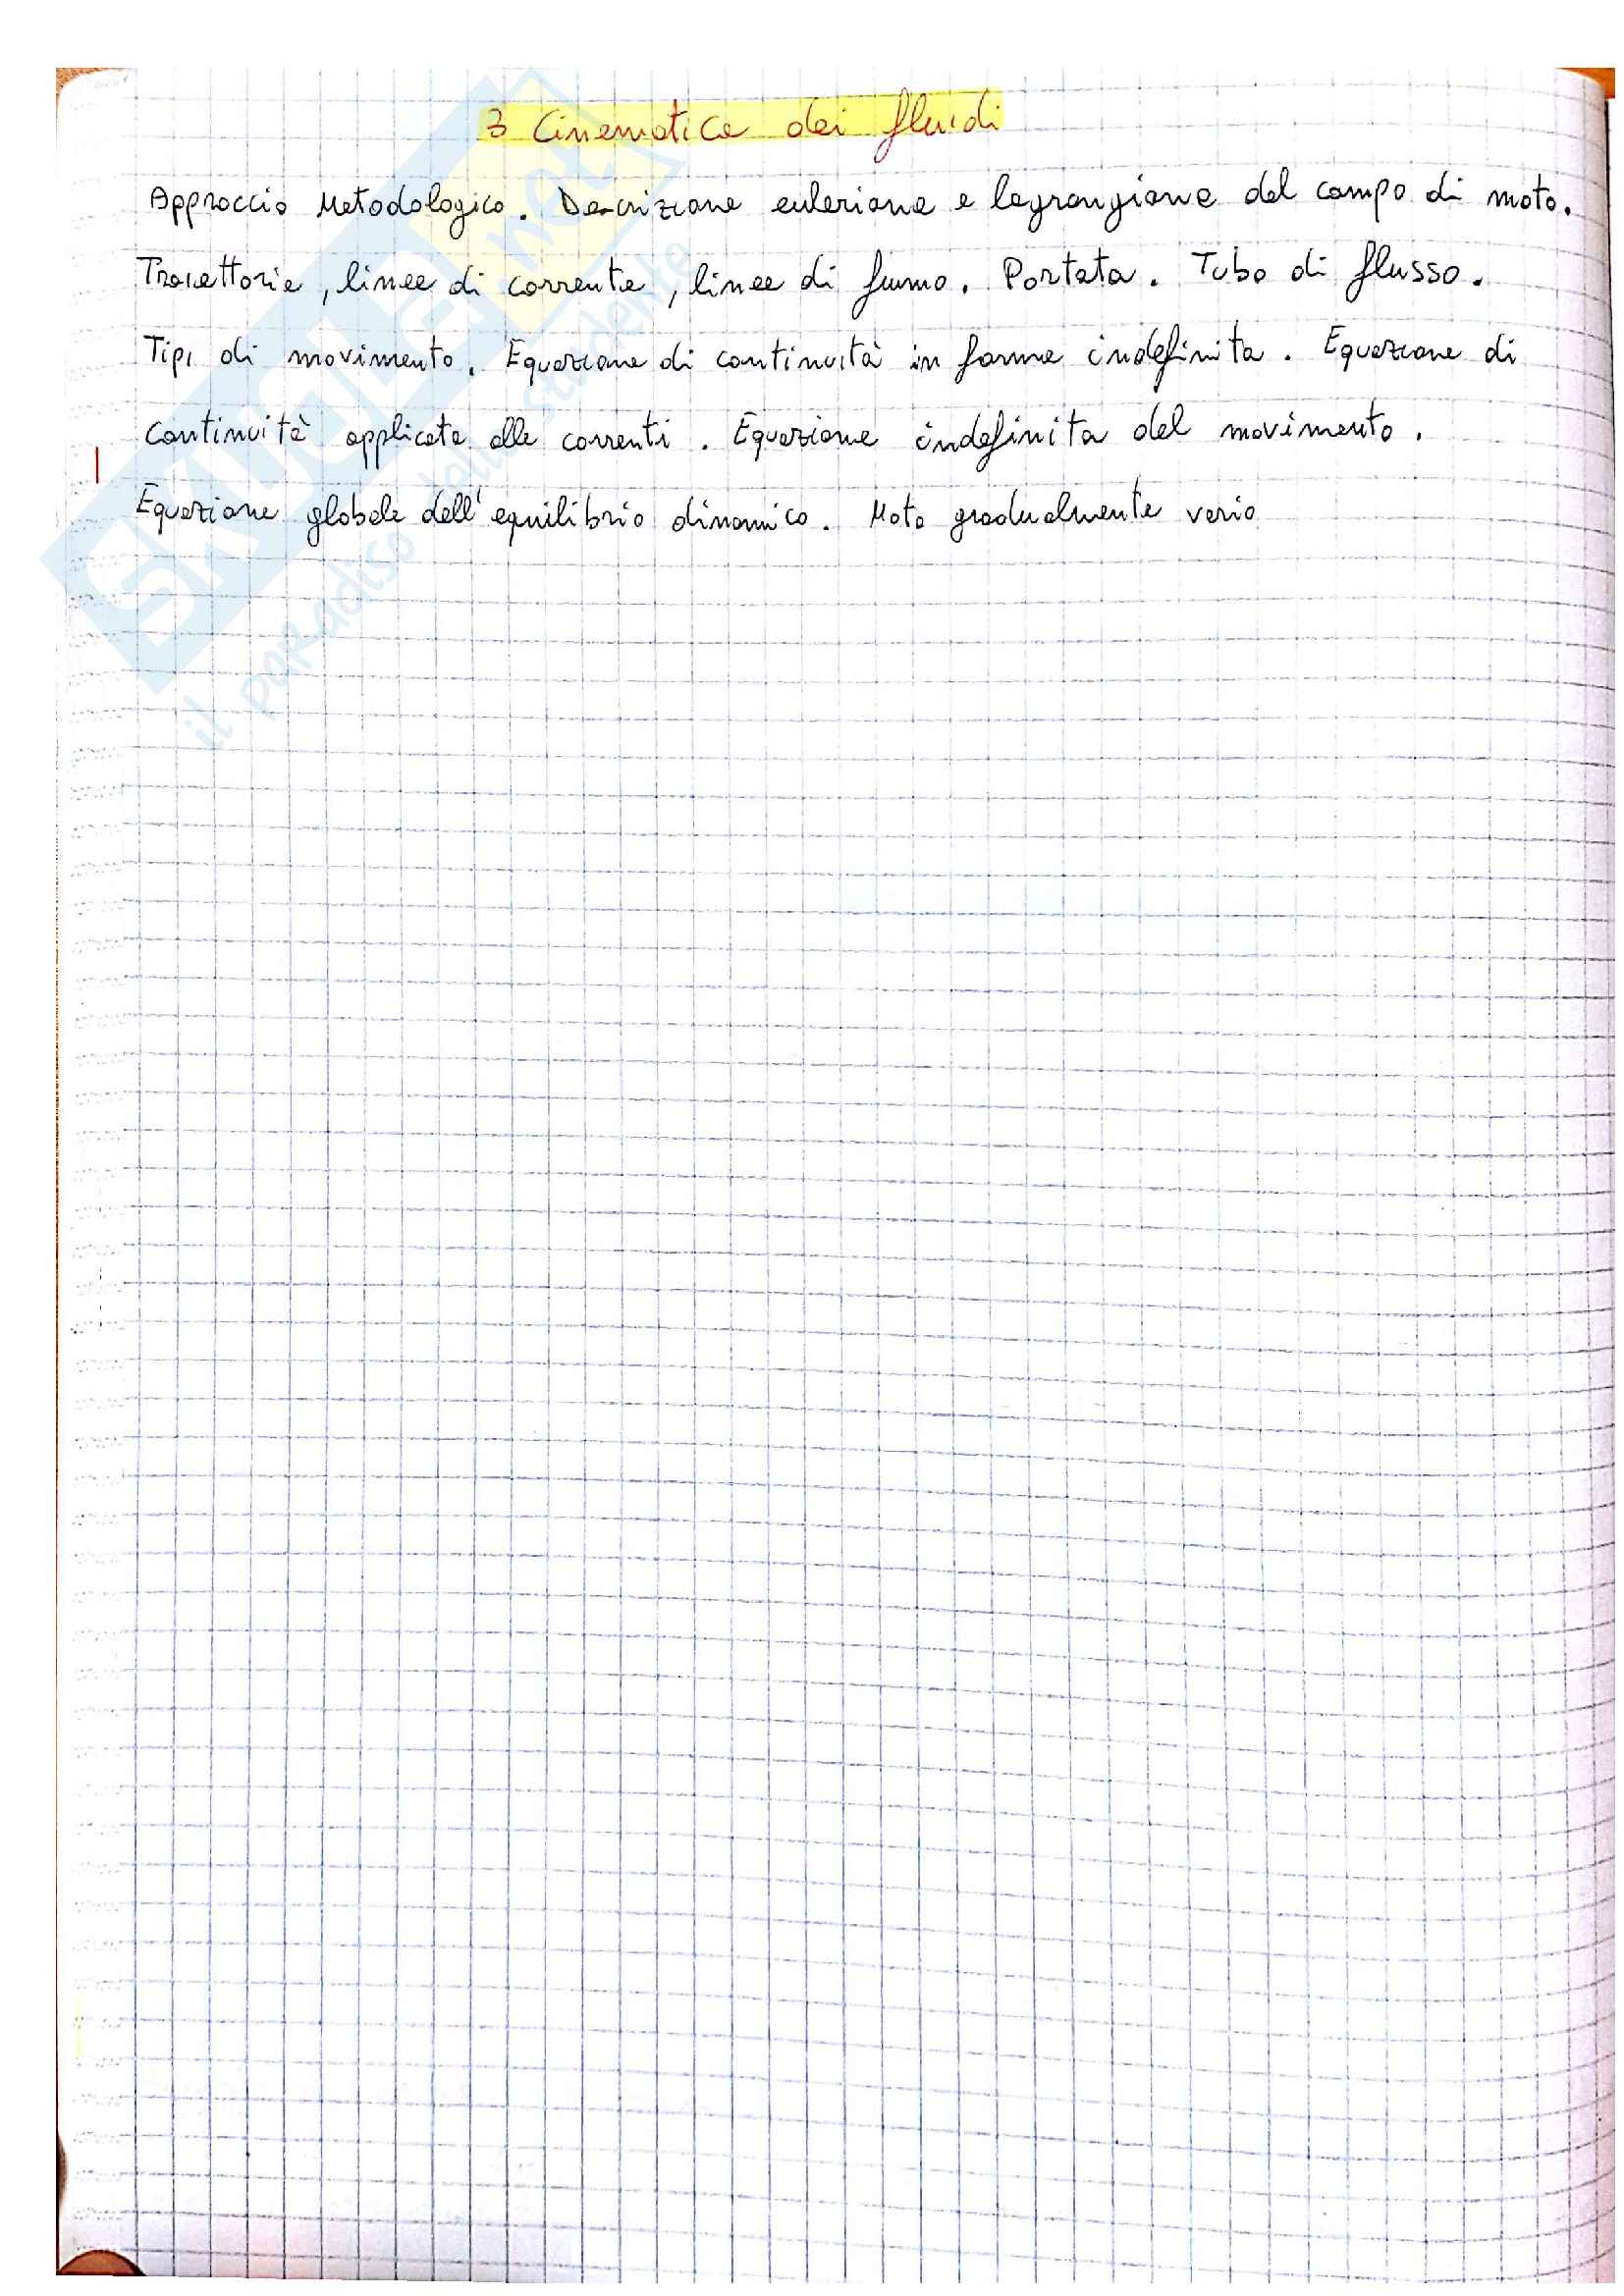 3 Cinematica dei fluidi
Approccio Metodologico. Descrizione euleriana e lagrangiana del campo di moto.
Traiettorie, linee di corrente, linee di fumo. Portata. Tubo di flusso.
Tipi di movimento. Equazione di continuità in forma indefinita. Equazione di
continuità applicata alle correnti. Equazione indefinita del movimento.
Equazione globale dell'equilibrio dinamico. Moto gradualmente vario
SKUOLA.net
il paradiso dello studente